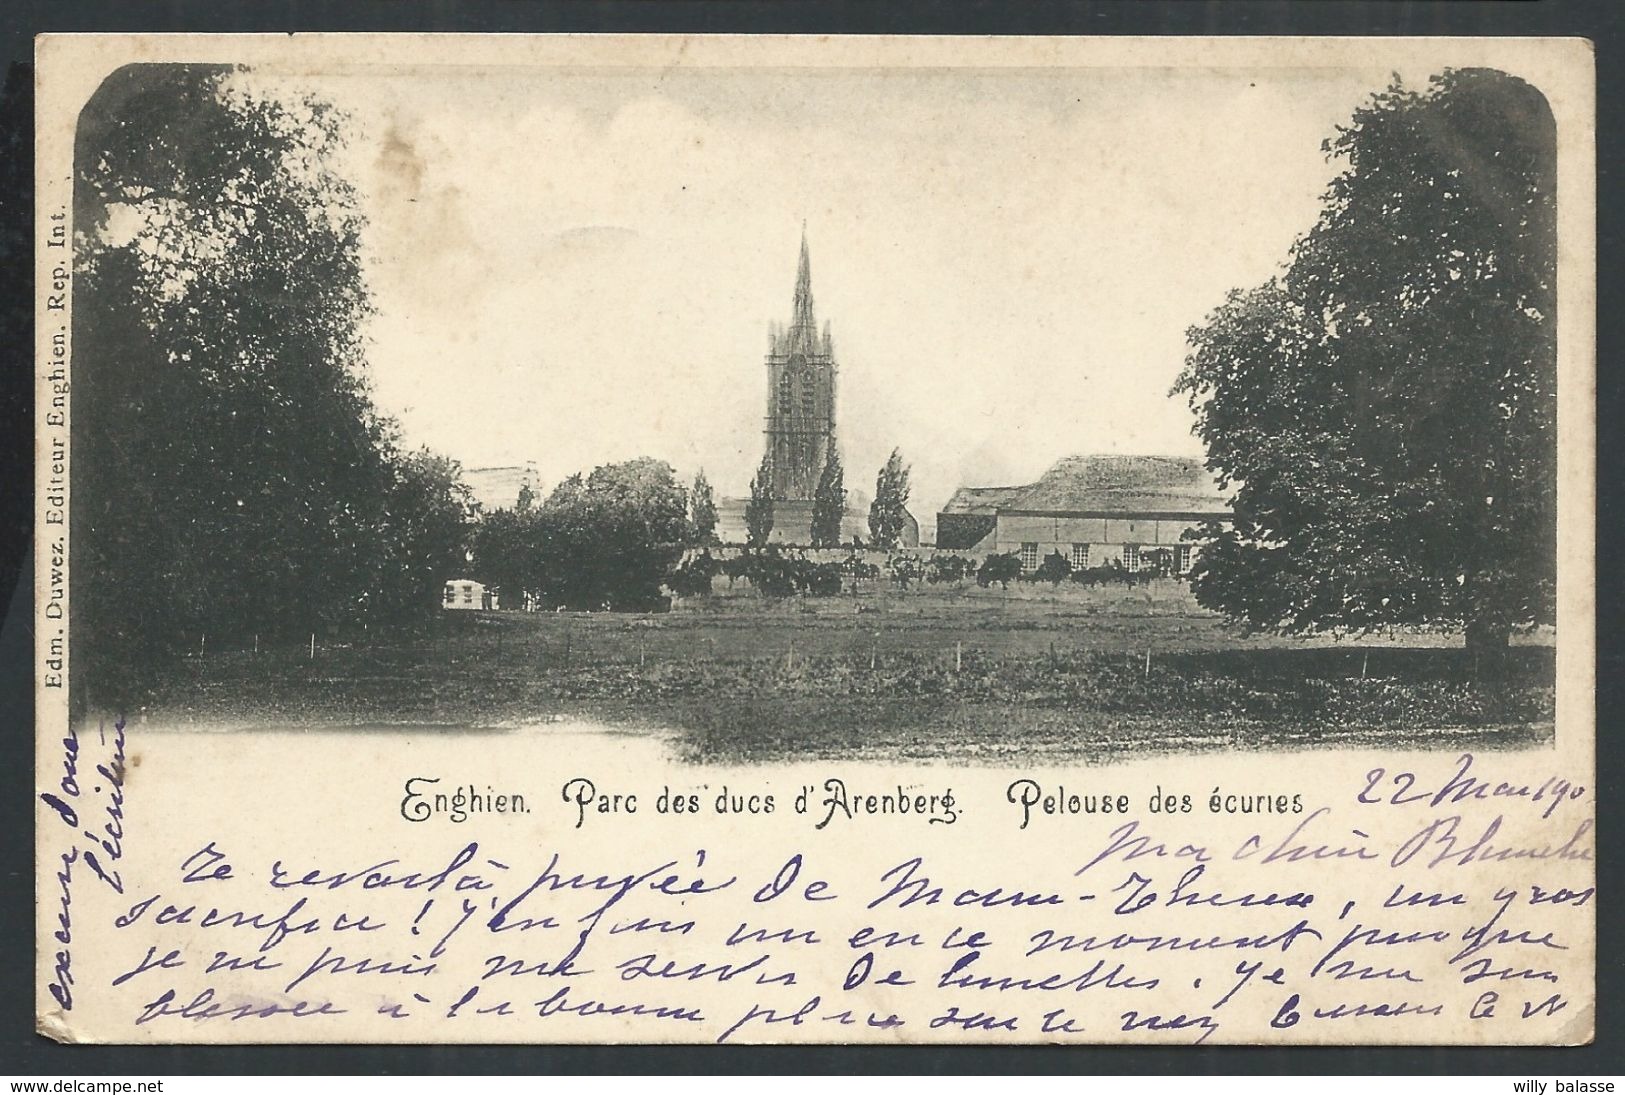 Edm. Duwez. Editeur Enghien. Rep. Int.
Enghien. Parc des ducs d'Arenberg. Pelouse des écuries
22 Mai 190
Ma chère Blanche
Te revoilà privée de Mam-Therese, un gros
sacrifice! J'en fais un en ce moment puisque
je ne puis me servir de lunettes. Je me suis
blessée à la bonne place sur le nez
excuse donc
l'écriture
willy balasse